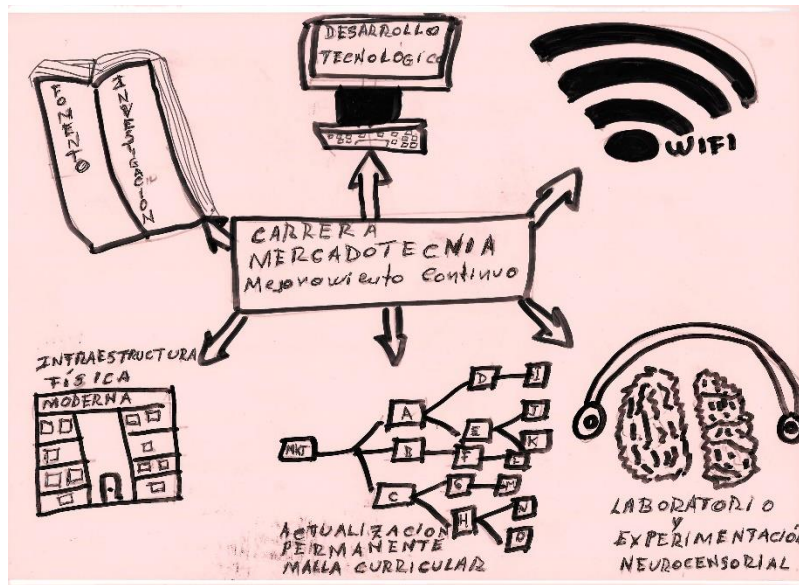 DESARROLLO
TECNOLÓGICO
FOMENTO
INVESTIGACION
WIFI
CARRERA
MERCADOTECNIA
Mejoramiento Continuo
INFRAESTRUCTURA
FÍSICA
MODERNA
MKT
A
B
C
D
E
F
G
H
I
J
K
L
M
N
O
ACTUALIZACION
PERMANENTE
MALLA CURRICULAR
LABORATORIO
y
EXPERIMENTACIÓN
NEUROCENSORIAL